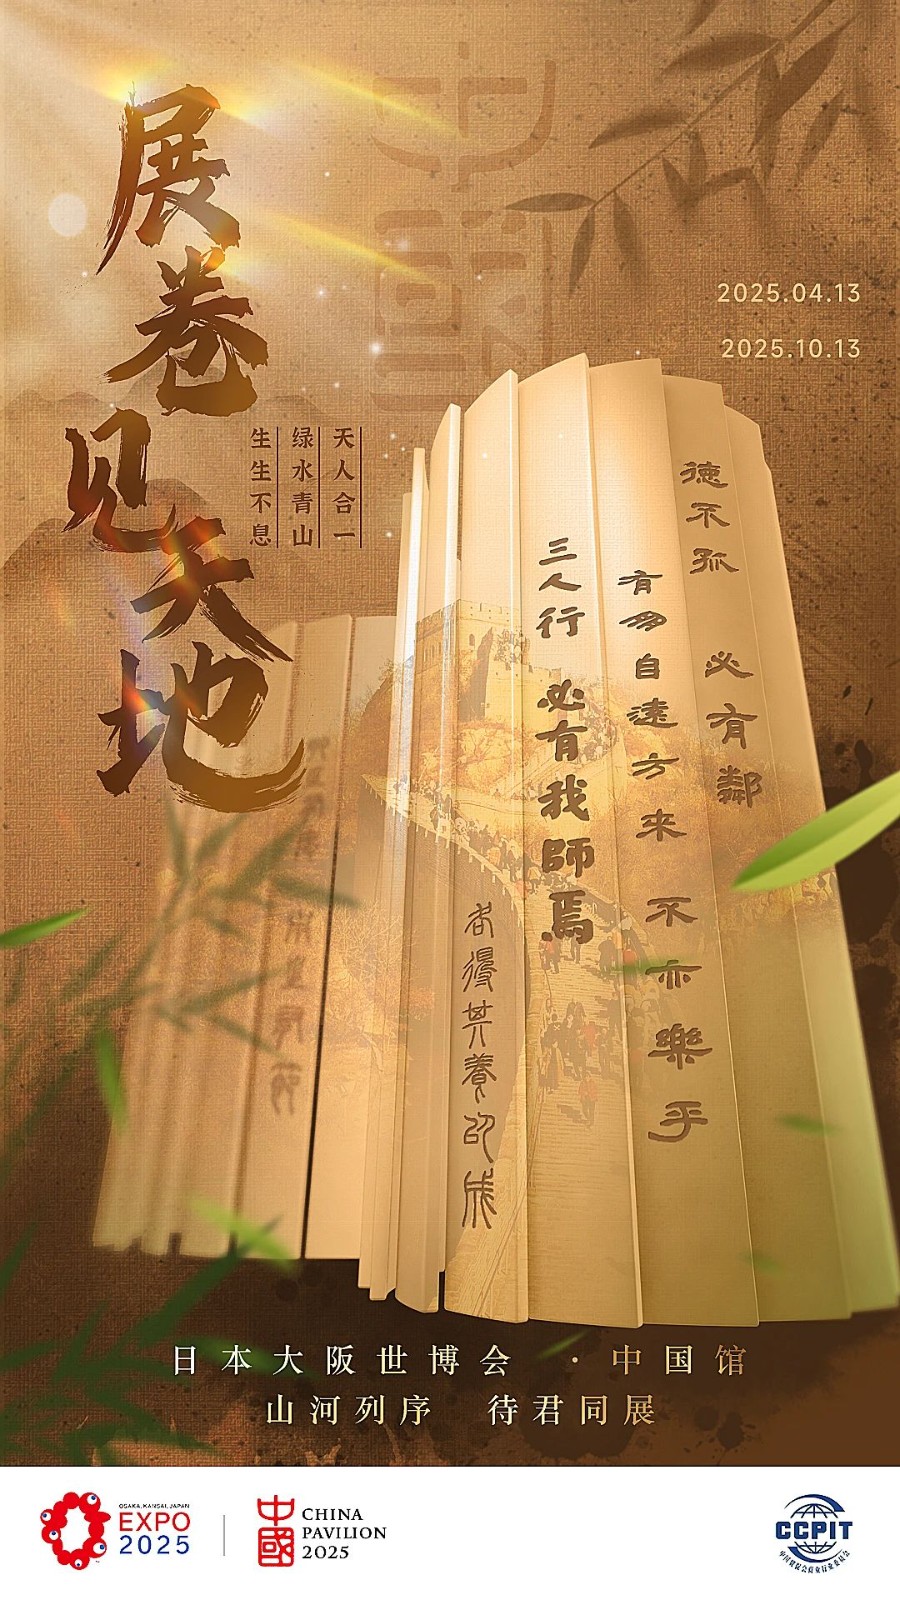 中國
展卷见天地
天人合一
绿水青山
生生不息
2025.04.13
2025.10.13
德不孤 必有鄰
有朋自遠方來 不亦樂乎
三人行 必有我師焉
各得其養以成
日本大阪世博会 · 中国馆
山河列序 待君同展
OSAKA, KANSAI, JAPAN
EXPO
2025
中國
CHINA
PAVILION
2025
CCPIT